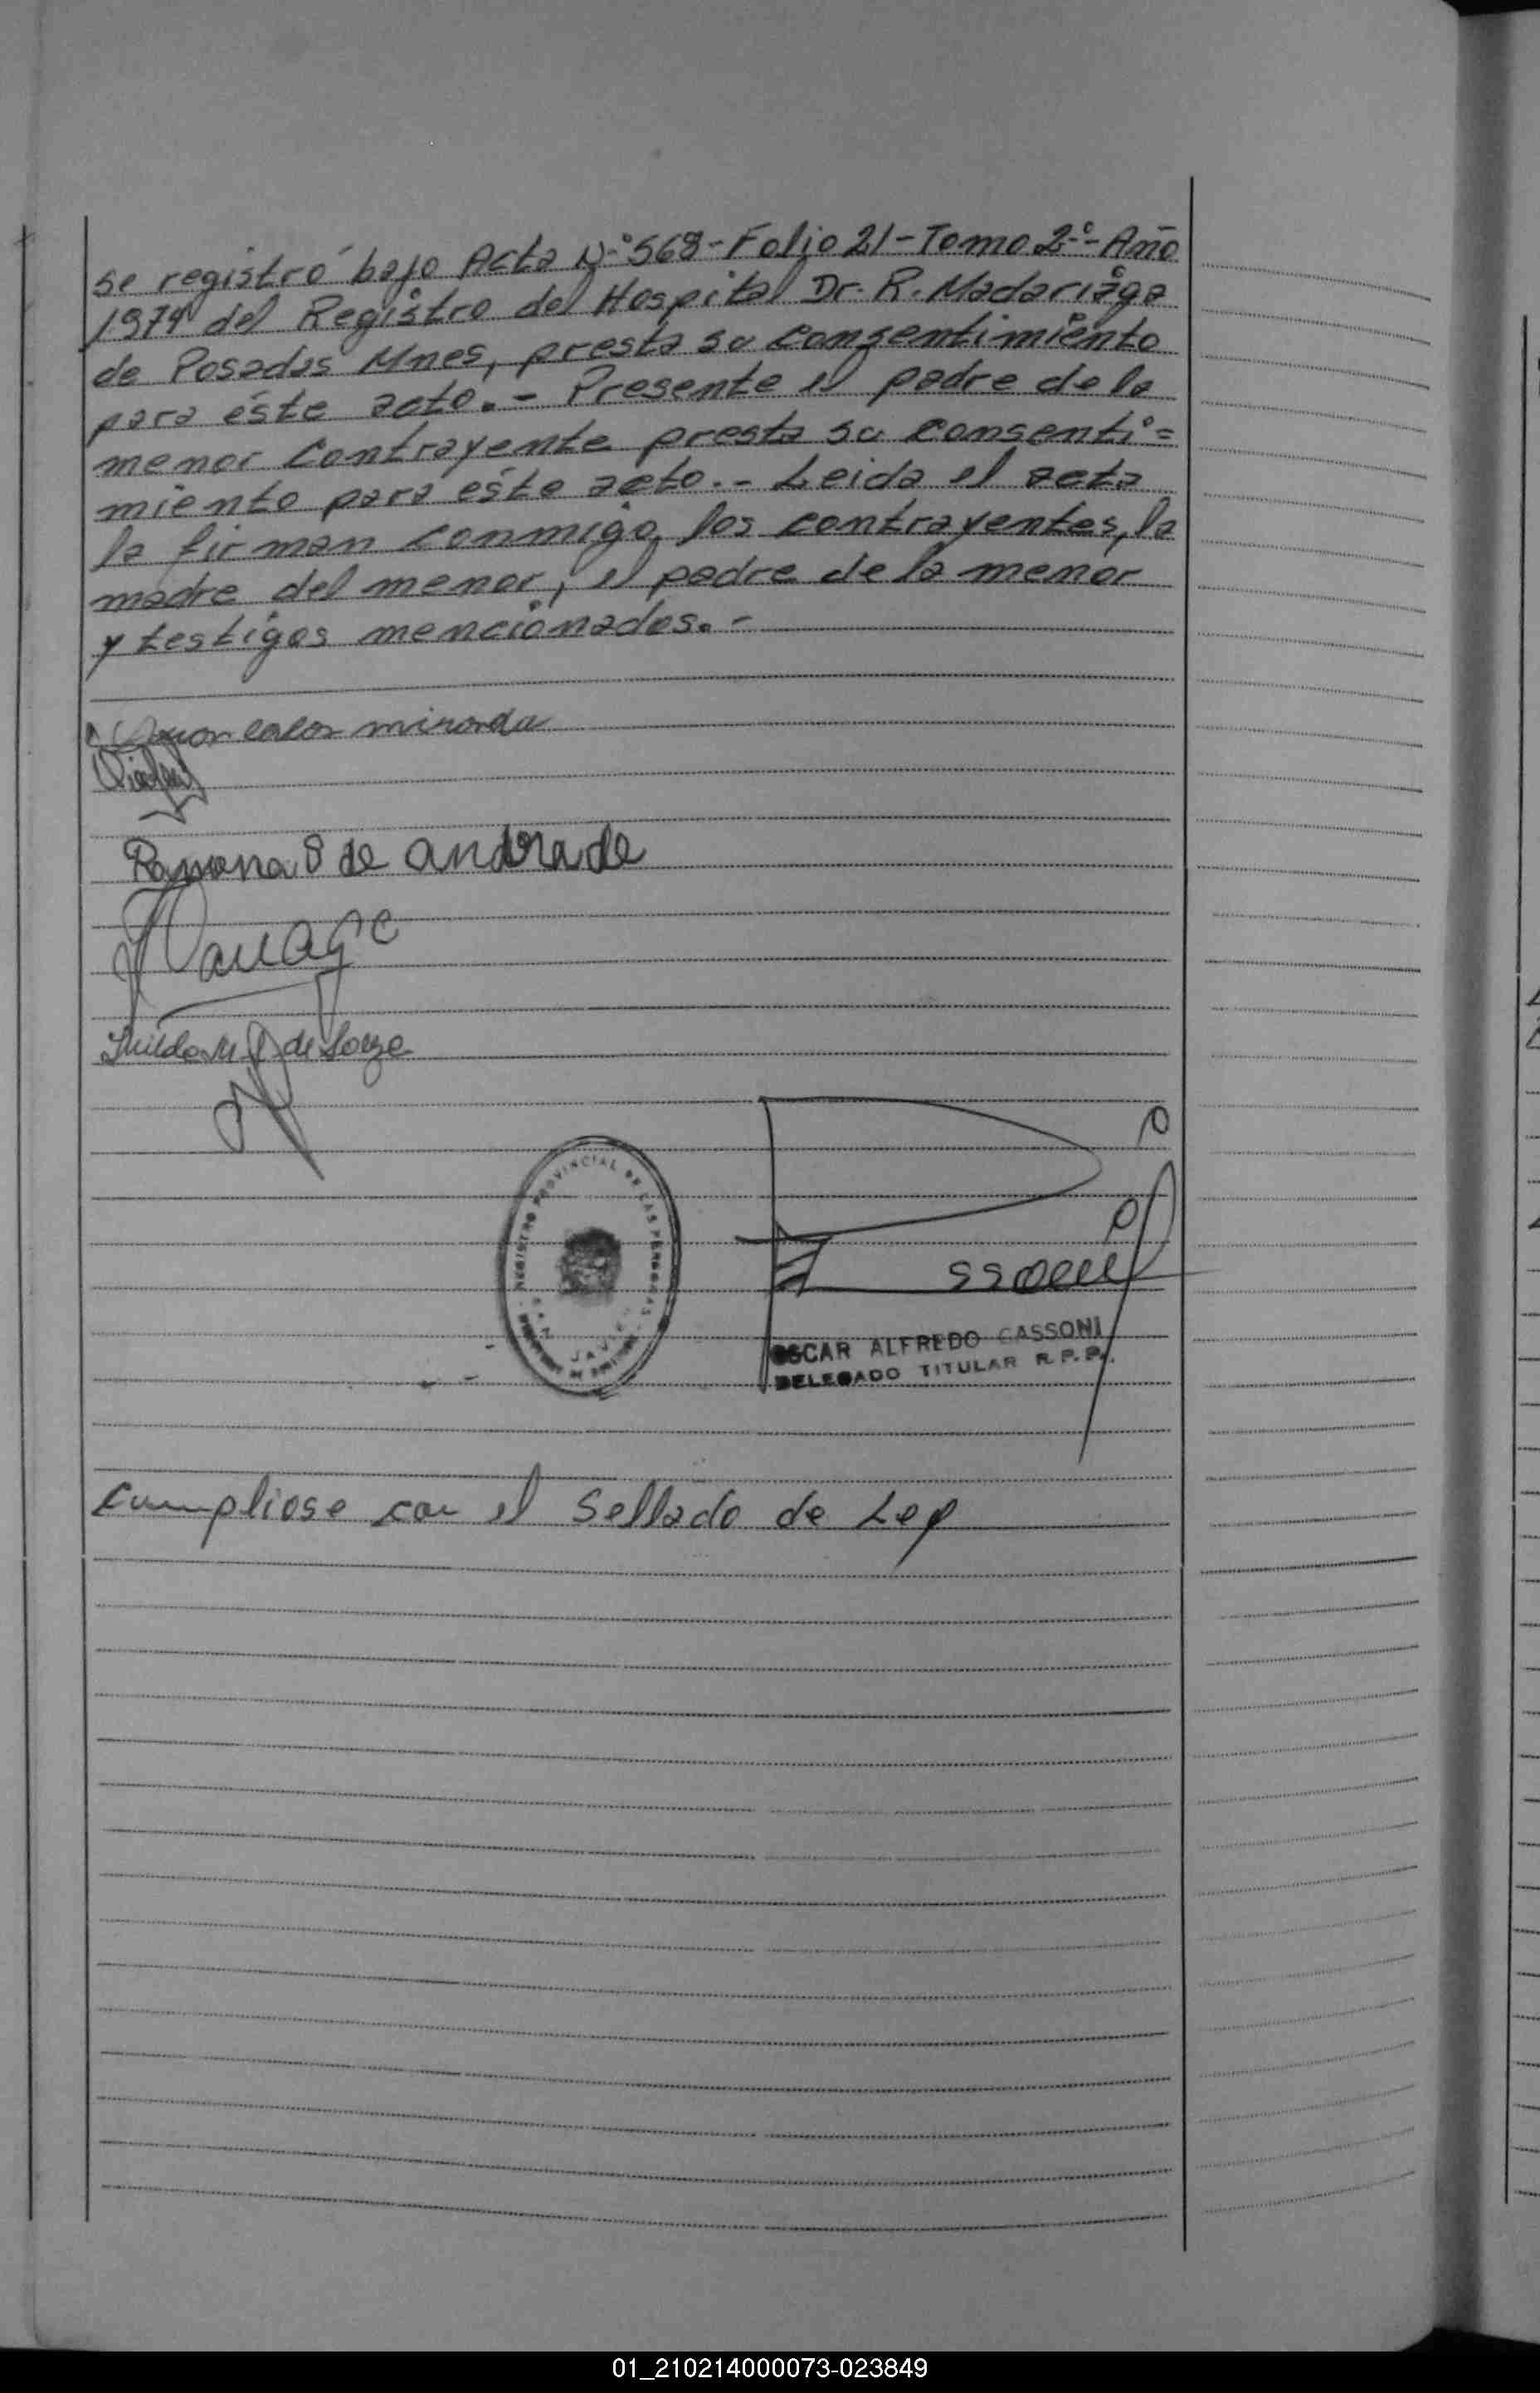 se registró bajo Acta Nº 568-Folio 21-Tomo 2º-Año
1974 del Registro del Hospital Dr. R. Madariaga
de Posadas Mnes, presta su consentimiento
para éste acto.- Presente el padre de la
menor contrayente presta su consenti=
miento para éste acto.- Leida el acta
la firman conmigo, los contrayentes, la
madre del menor, el padre de la menor
y testigos mencionados.-
miranda
Ramona S de andrade
de Souze
REGISTRO PROVINCIAL DE LAS PERSONAS
SAN JAVIER
OSCAR ALFREDO CASSONI
DELEGADO TITULAR R.P.P.
Cumpliose con el Sellado de Ley
01_210214000073-023849